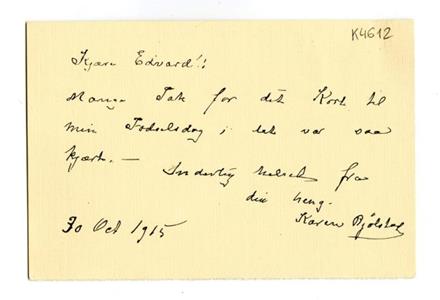 K4612
Kjære Edvard!!
Mange Tak for dit Kort til
min Fødselsdag, det var saa
kjært. —
Inderlig hilsen fra
din heng.
Karen Bjølstad
30 Oct 1915